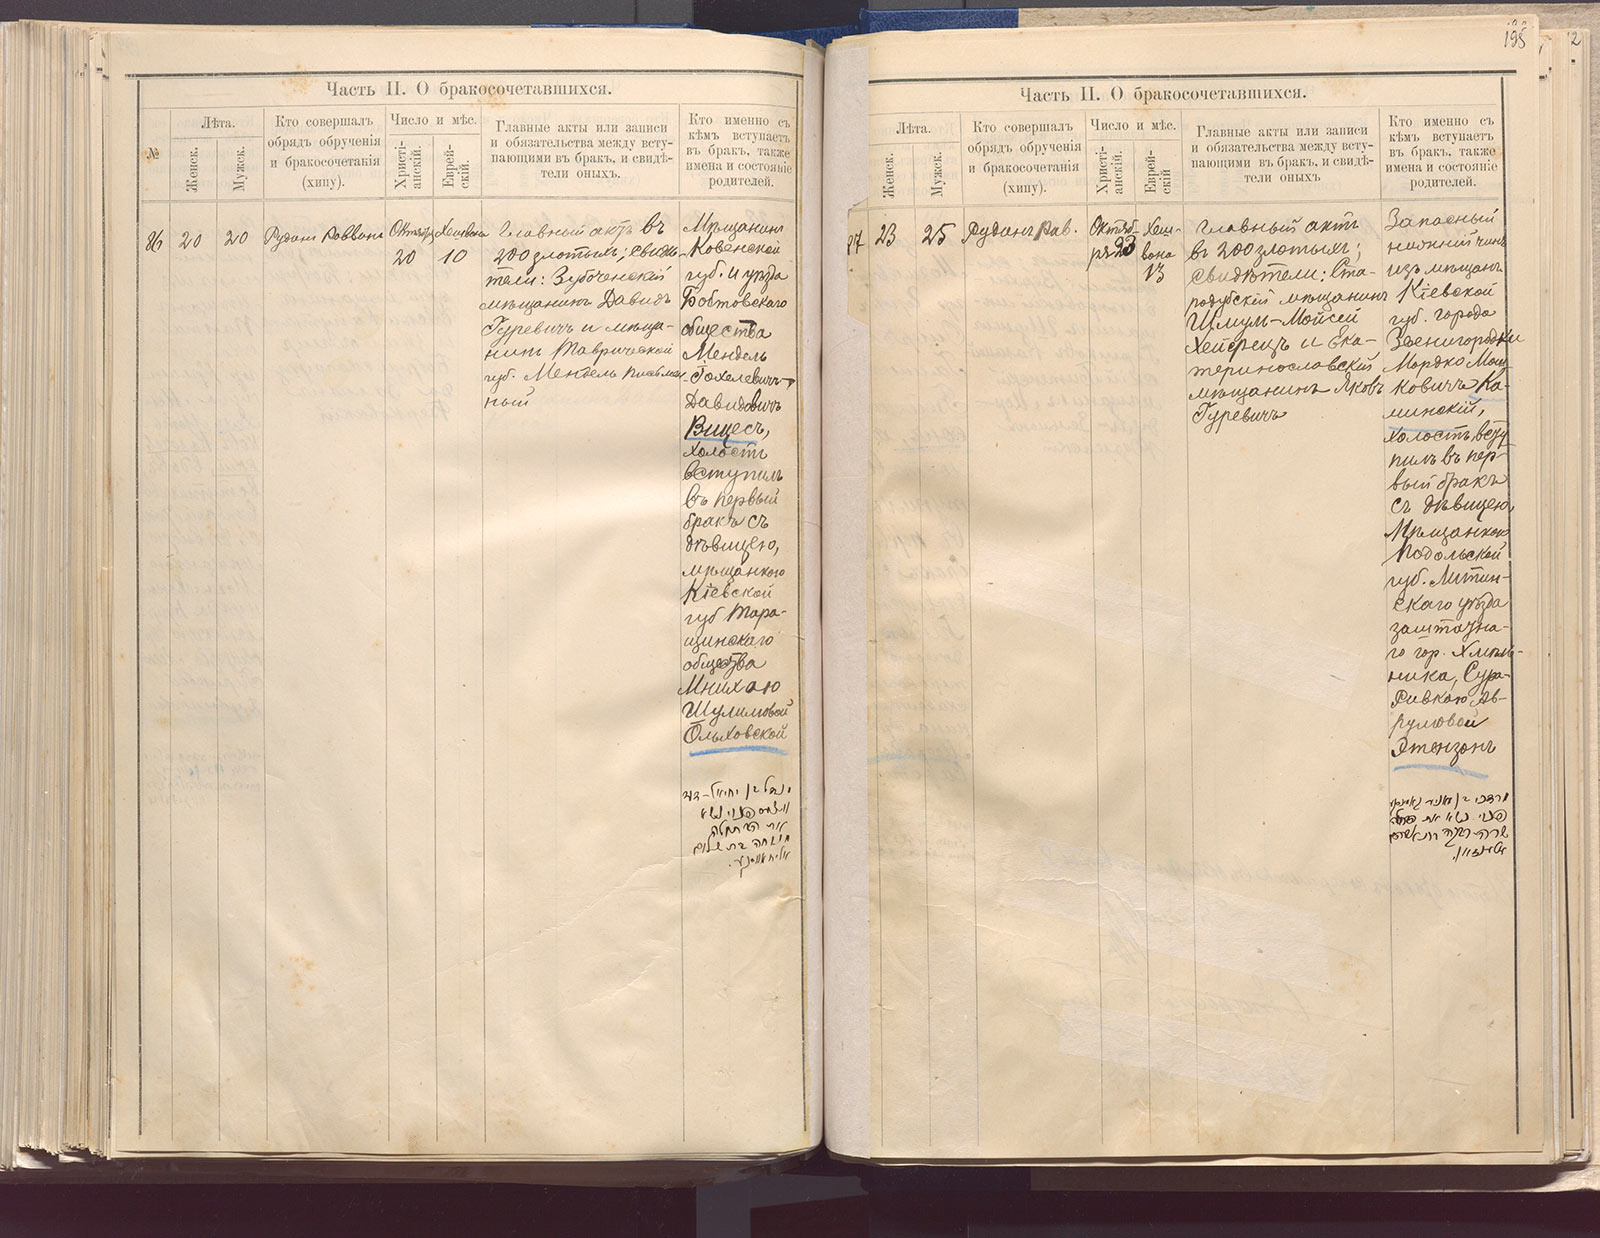 Часть II. О бракосочетавшихся.
№
Лѣта.
Женск.
Мужск.
Кто совершалъ
обрядъ обрученія
и бракосочетанія
(хипу).
Число и мѣс.
Христі-
анскій.
Еврей-
скій.
Главные акты или записи
и обязательства между всту-
пающими въ бракъ, и свидѣ-
тели оныхъ.
Кто именно съ
кѣмъ вступаетъ
въ бракъ, также
имена и состояніе
родителей.
86
20
20
Рудинъ Раввинъ
Октября
20
Хешвона
10
Главный актъ въ
200 злотыхъ; свидѣ-
тели:
мѣщанинъ Давидъ
Гуревичъ и мѣща-
нинъ Таврической
губ. Мендель Письмен
ный
Мѣщанинъ
Ковенской
губ. и уѣзда
Бобтовскаго
общества
Мендель
Давидовичъ
Вицесъ,
холостъ
вступилъ
въ первый
бракъ съ
дѣвицею,
мѣщанкою
Кіевской
губ Тара-
щинскаго
общества
Мнихаю
Шулимовой
Ольховской
את הבתולה
בת שלום
195
Часть II. О бракосочетавшихся.
Лѣта.
Женск.
Мужск.
Кто совершалъ
обрядъ обрученія
и бракосочетанія
(хипу).
Число и мѣс.
Христі-
анскій.
Еврей-
скій
Главные акты или записи
и обязательства между всту-
пающими въ бракъ, и свидѣ-
тели оныхъ
Кто именно съ
кѣмъ вступаетъ
въ бракъ, также
имена и состояніе
родителей.
87
23
25
Рудинъ Рав.
Октяб-
ря 23
Хеш-
вона
13
Главный актъ
въ 200 злотыхъ;
свидѣтели: Ста-
родубскій мѣщанинъ
Шмуль-Мойсей
Хейфецъ и Ека-
теринославскій
мѣщанинъ Яковъ
Гуревичъ
Запасный
нижній чинъ
изъ мѣщанъ
Кіевской
губ. города
Звенигородки
Мордко Мош
ковичъ Ка-
минскій,
холостъ всту
пилъ въ пер-
вый бракъ
съ дѣвицею,
Мѣщанкою
Подольской
губ. Литин-
скаго уѣзда
заштатна-
го гор. Хмель-
ника, Сура-
Ривкою Ав-
румовой
Этензонъ
מרדכי בן
נשא את
שרה רבקה בת